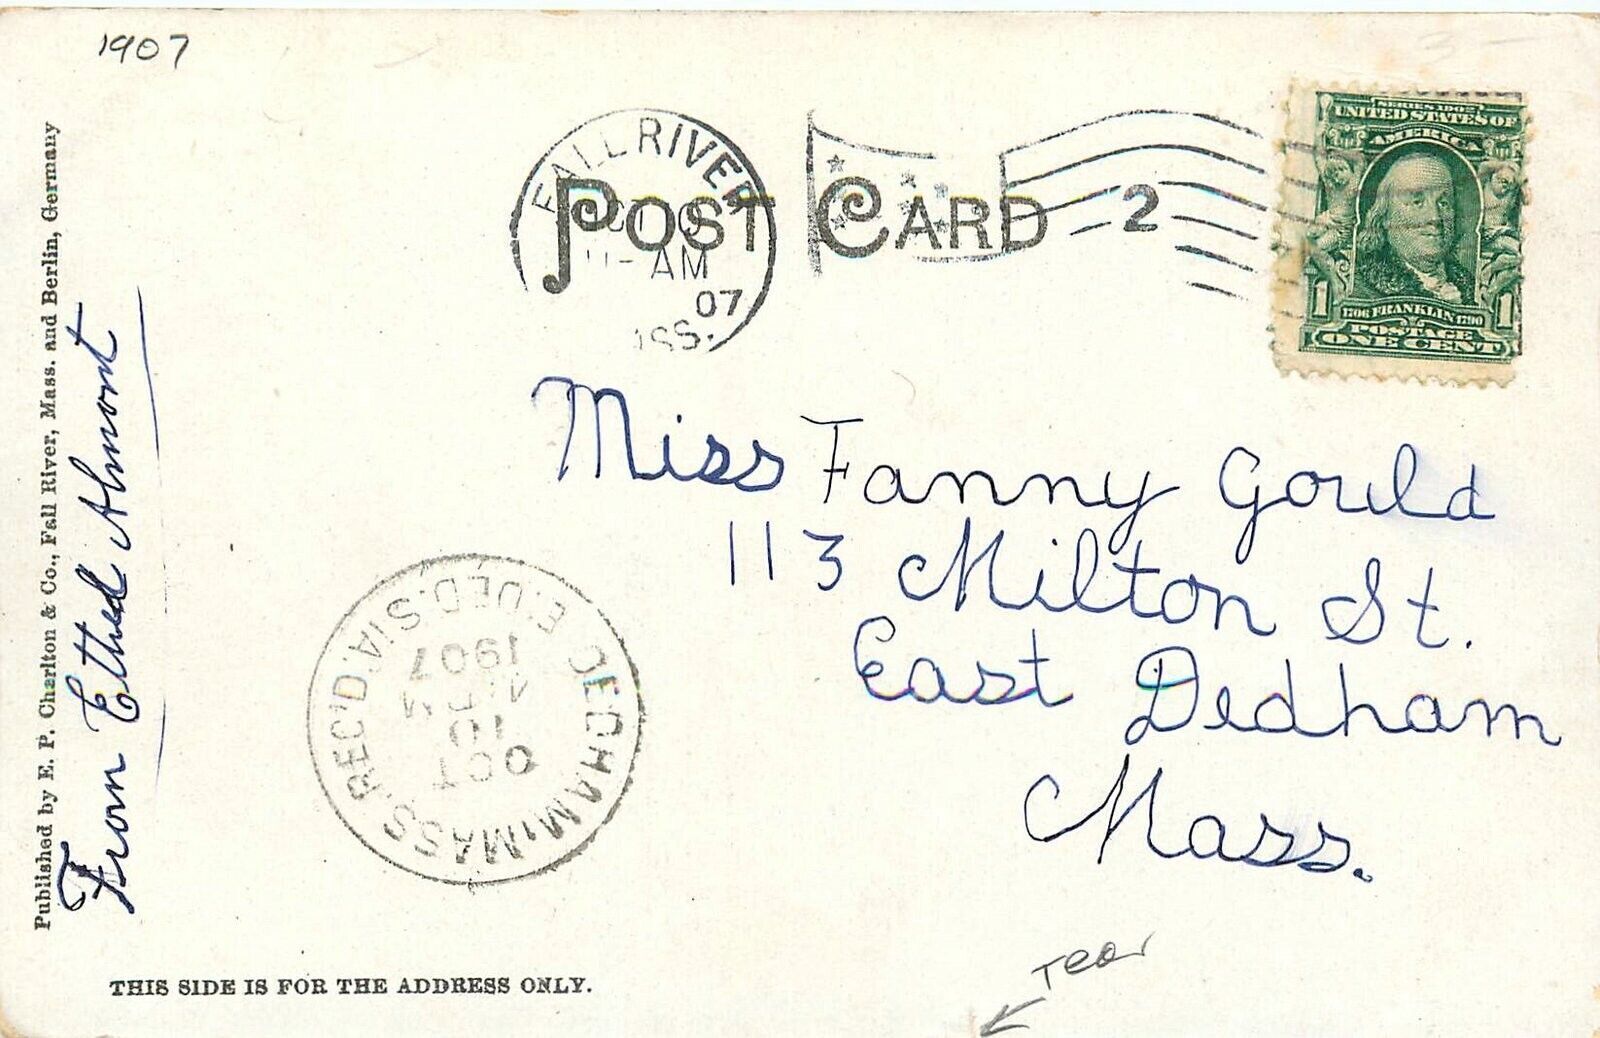 1907
FALL RIVER
11-AM
07
POST CARD 2
SERIES 1902
UNITED STATES OF
AMERICA
1706 FRANKLIN 1790
1 1
POSTAGE
ONE CENT
Miss Fanny Gould
113 Milton St.
East Dedham
Mass.
DEDHAM, MASS. REC'D.
E. DED. STA.
OCT
10
1907
Published by E. P. Charlton & Co., Fall River, Mass. and Berlin, Germany
From Ethel Almont
THIS SIDE IS FOR THE ADDRESS ONLY.
Tear